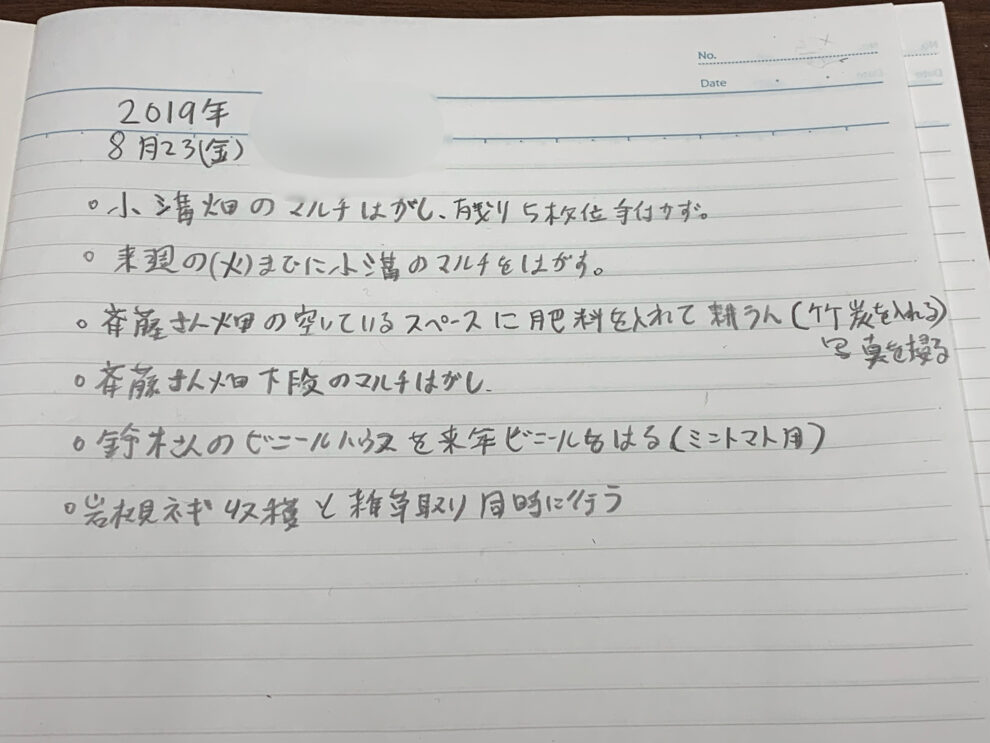 No.
Date
2019年
8月23(金)
○小溝畑のマルチはがし、残り5枚位手付かず。
○来週の(火)までに小溝のマルチをはがす。
○斉藤さん畑の空いているスペースに肥料を入れて耕うん(竹炭を入れる)
写真を撮る
○斉藤さん畑下段のマルチはがし.
○鈴木さんのビニールハウスを来年ビニールをはる(ミニトマト用)
○岩槻ネギ収穫と雑草取り同時に行う